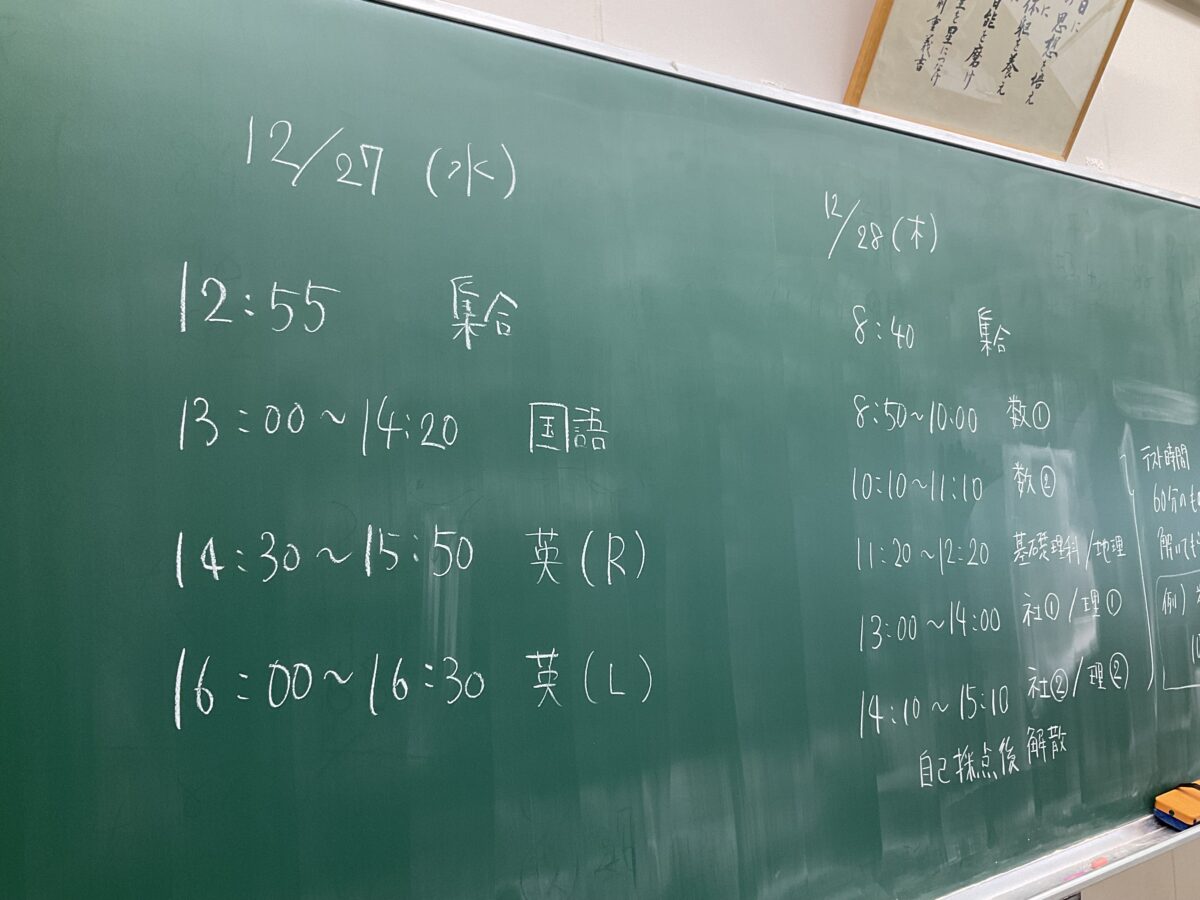 12/27 (水)
12:55 集合
13:00～14:20 国語
14:30～15:50 英(R)
16:00～16:30 英(L)
12/28(木)
8:40 集合
8:50～10:00 数①
10:10～11:10 数②
11:20～12:20 基礎理科/地理
13:00～14:00 社①/理①
14:10～15:10 社②/理②
自己採点後 解散
テスト時間
60分のも
解いても
例)
思想を培え
体躯を養え
智能を磨け